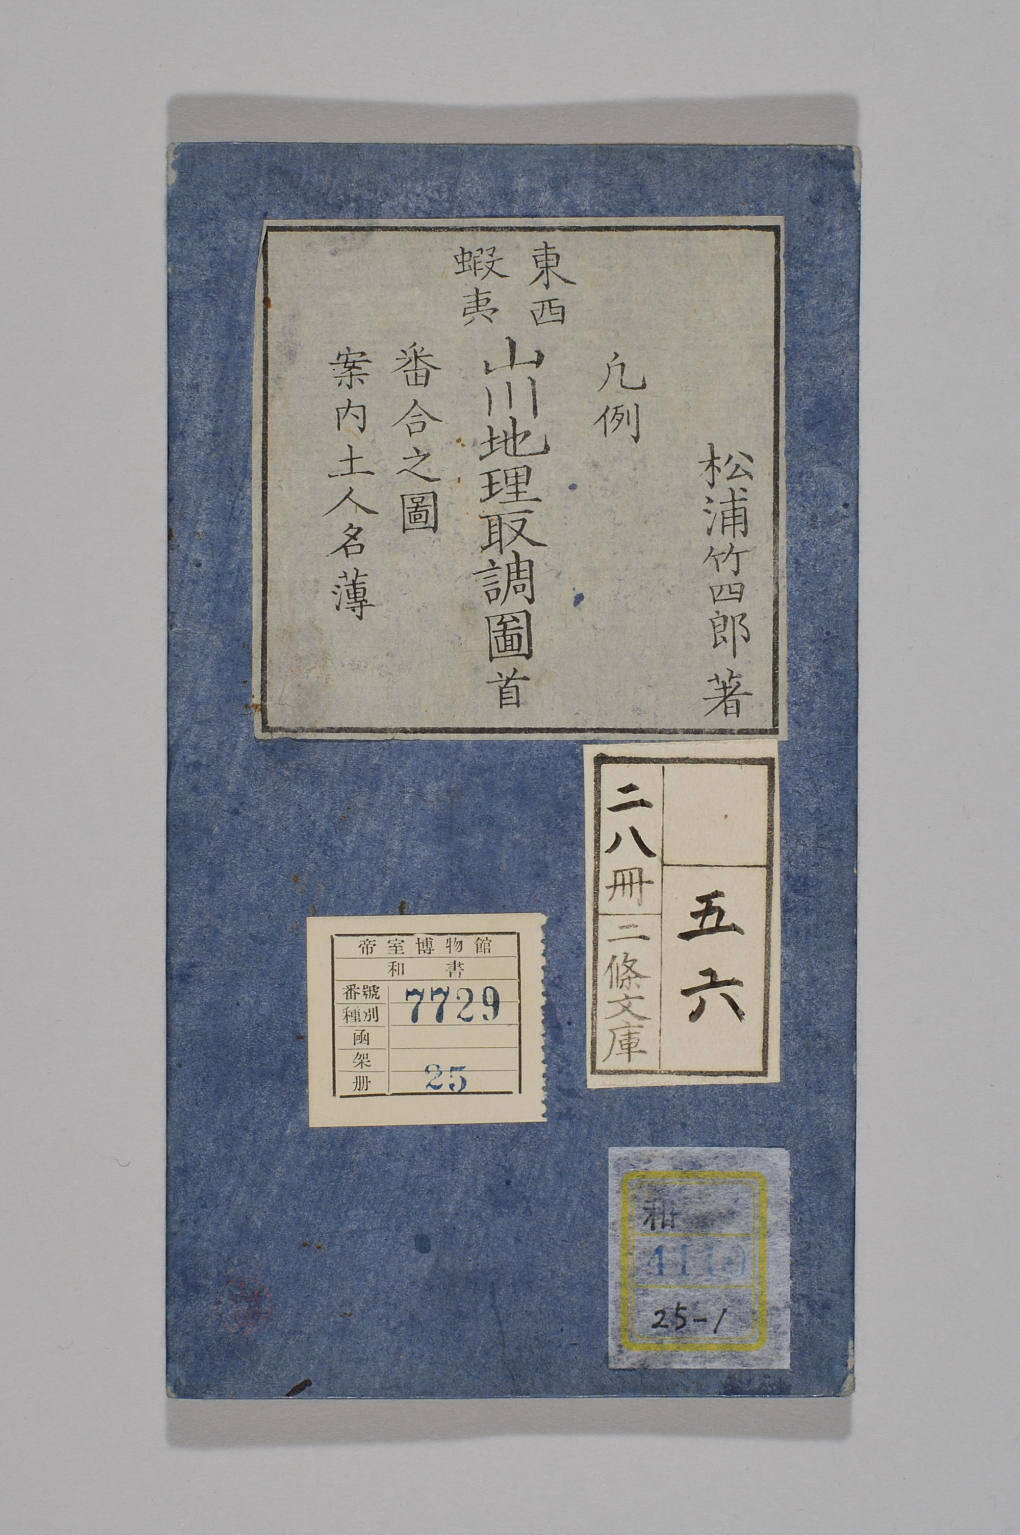 松浦竹四郎著
凡例
東西
蝦夷
山川地理取調圖首
番合之圖
案内土人名薄
五六
二八冊
二條文庫
帝室博物館
和書
番號 7729
種別
函
架
册 25
和
4119
25-1